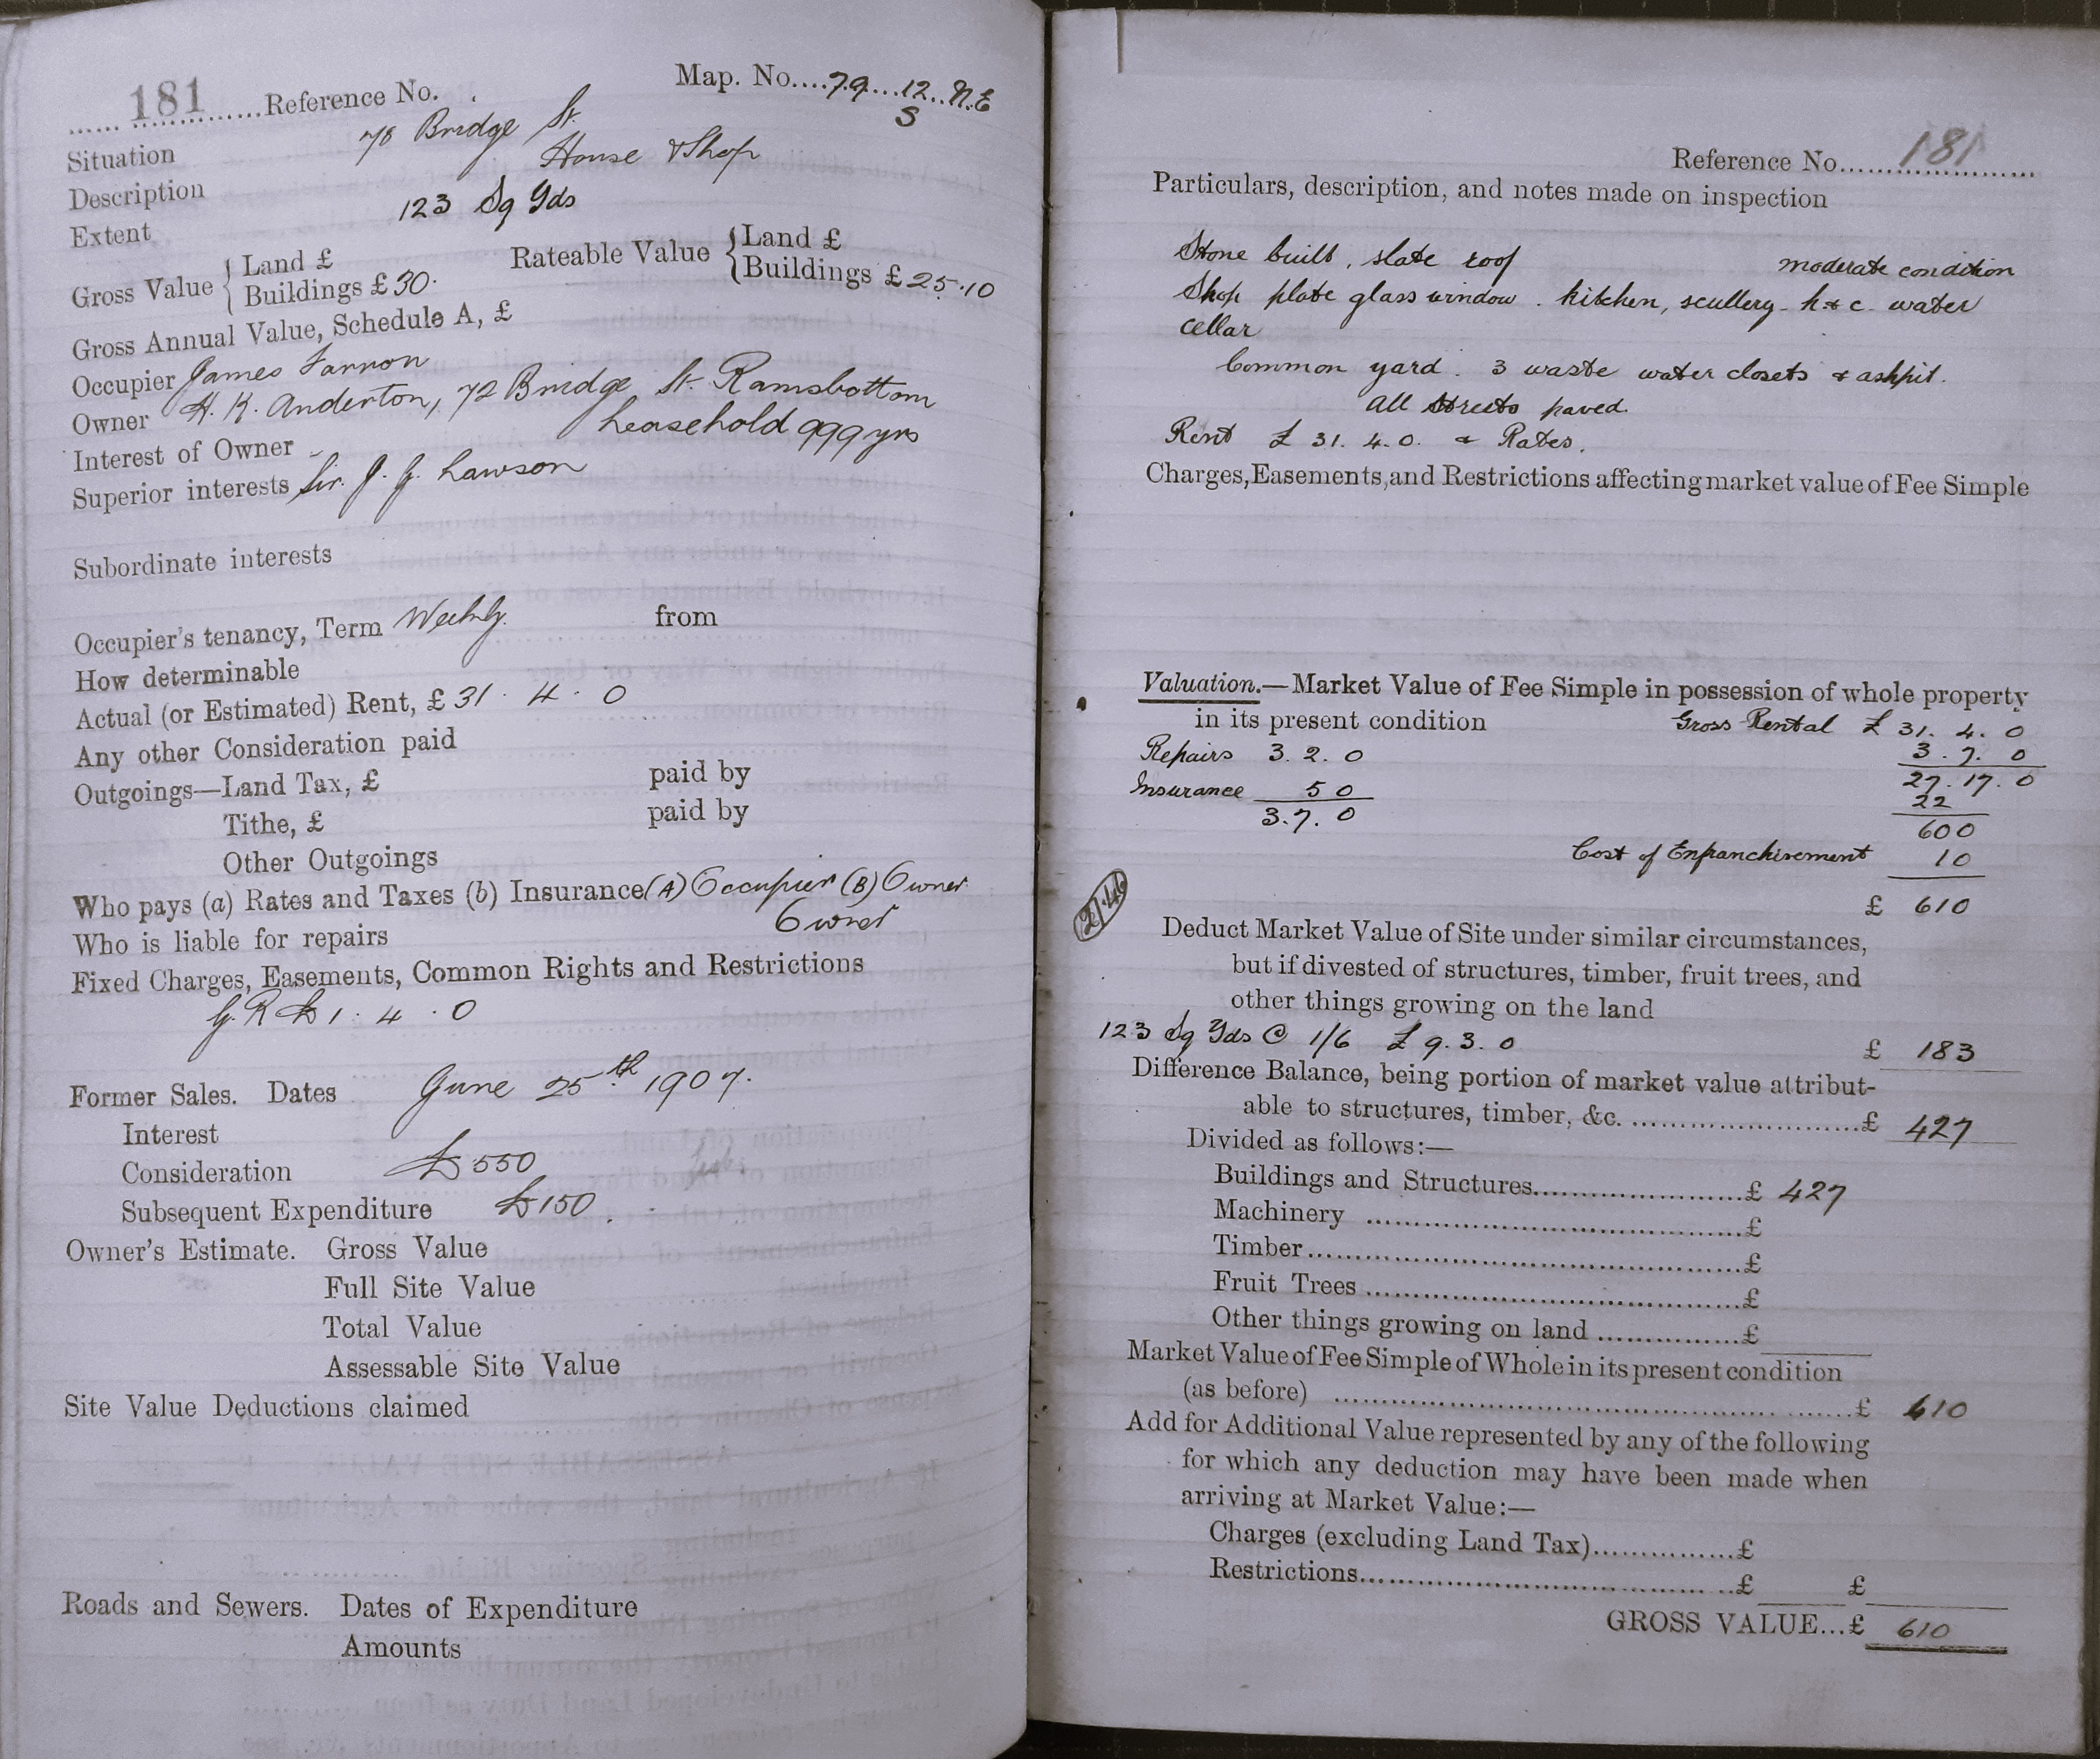 181 Reference No.
Map. No. 79 12 N.E
S
Situation 78 Bridge St.
Description House & Shop
Extent 123 Sq Yds
Gross Value { Land £
Buildings £ 30.
Rateable Value { Land £
Buildings £ 25.10
Gross Annual Value, Schedule A, £
Occupier James Farron
Owner H. K. Anderton, 72 Bridge St. Ramsbottom
Interest of Owner Leasehold 999 yrs
Superior interests Sir. J. G. Lawson
Subordinate interests
Occupier's tenancy, Term Weekly. from
How determinable
Actual (or Estimated) Rent, £ 31. 4. 0
Any other Consideration paid
Outgoings—Land Tax, £ paid by
Tithe, £ paid by
Other Outgoings
Who pays (a) Rates and Taxes (b) Insurance (A) Occupier (B) Owner
Who is liable for repairs Owner
Fixed Charges, Easements, Common Rights and Restrictions
G. R £1. 4. 0
Former Sales. Dates June 25th 1907.
Interest
Consideration £550
Subsequent Expenditure £150.
Owner's Estimate. Gross Value
Full Site Value
Total Value
Assessable Site Value
Site Value Deductions claimed
Roads and Sewers. Dates of Expenditure
Amounts
Reference No. 181
Particulars, description, and notes made on inspection
Stone built, slate roof moderate condition
Shop plate glass window. kitchen, scullery - h & c. water
cellar
Common yard. 3 waste water closets & ashpit.
All streets paved.
Rent £ 31. 4. 0. & Rates.
Charges, Easements, and Restrictions affecting market value of Fee Simple
Valuation.—Market Value of Fee Simple in possession of whole property
in its present condition Gross Rental £ 31. 4. 0
Repairs 3. 2. 0 3. 7. 0
27. 17. 0
Insurance 5 0 22
3. 7. 0 600
Cost of Enfranchisement 10
£ 610
21.46
Deduct Market Value of Site under similar circumstances,
but if divested of structures, timber, fruit trees, and
other things growing on the land
123 Sq Yds @ 1/6 £ 9. 3. 0 £ 183
Difference Balance, being portion of market value attribut-
able to structures, timber, &c. £ 427
Divided as follows:—
Buildings and Structures £ 427
Machinery £
Timber £
Fruit Trees £
Other things growing on land £
Market Value of Fee Simple of Whole in its present condition
(as before) £ 610
Add for Additional Value represented by any of the following
for which any deduction may have been made when
arriving at Market Value:—
Charges (excluding Land Tax) £
Restrictions £ £
GROSS VALUE... £ 610